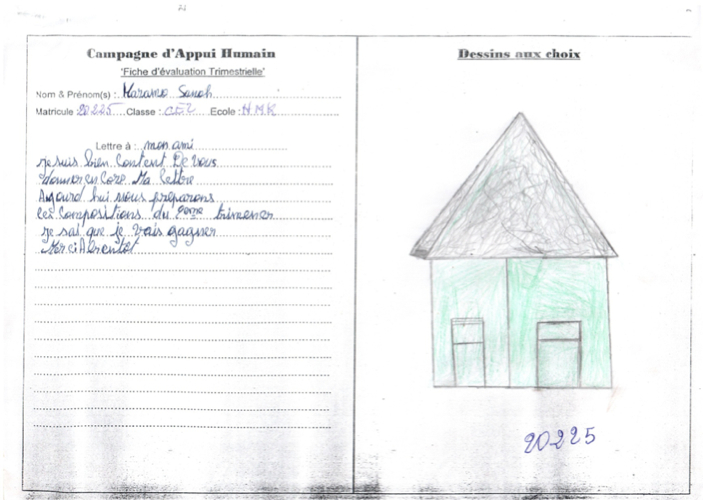 Campagne d'Appui Humain
'Fiche d'évaluation Trimestrielle'
Nom & Prénom(s) : Karamo Sanoh
Matricule 20225 Classe : CE2 Ecole : H.M.K
Lettre à : mon ami
je suis bien Content De vous
donner en Core Ma lettre
Aujourd hui nous préparons
les Compositions du 2eme trimester
je sai que je vais gagner
Mer ci A bientot
Dessins aux choix
20225